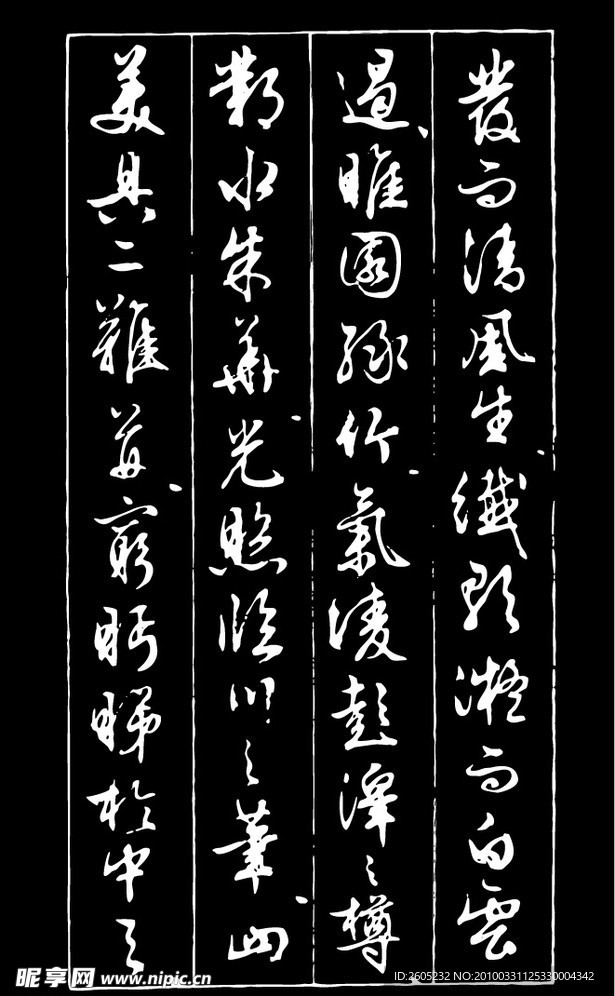 發而清風生纖歌凝而白雲
遏睢園綠竹氣淩彭澤之樽
鄴水朱華光照臨川之筆四
美具二難並窮眄睇於中天
昵享网 www.nipic.cn
ID:2605232 NO:20100331125330004342